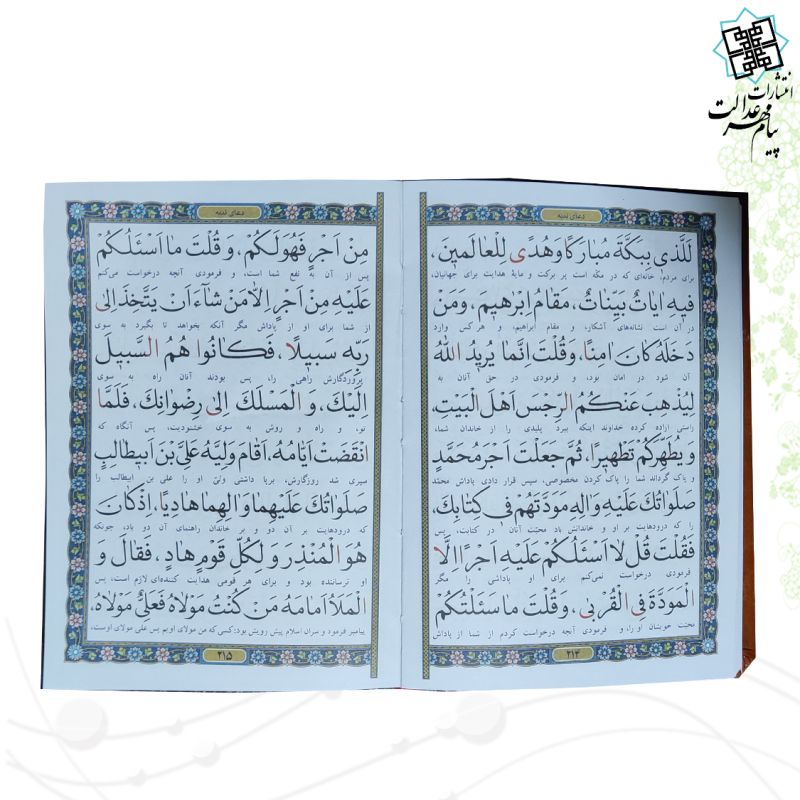 انتشارات
پیام مهر عدالت
دعای ندبه
لَلَّذی بِبَکَّةَ مُبارَکًا وَ هُدًی لِلْعالَمینَ،
برای مردم؛ خانه‌ای که در مکّه است پر برکت و مایهٔ هدایت برای جهانیان،
فیهِ ایاتٌ بَیِّناتٌ، مَقامُ اِبْرهیمَ، وَمَنْ
در آن است نشانه‌های آشکار، و مقام ابراهیم، و هر کس وارد
دَخَلَهُ کانَ امِنًا، وَقُلْتَ اِنَّما یُریدُ اللهُ
آن شود در امان بود، و فرمودی در حق آنان به
لِیُذْهِبَ عَنْکُمُ الرِّجْسَ اَهْلَ الْبَیْتِ،
راستی اراده کرده خداوند اینکه ببرد پلیدی را از خاندان شما،
وَ یُطَهِّرَکُمْ تَطْهیرًا، ثُمَّ جَعَلْتَ اَجْرَ مُحَمَّدٍ
و پاک گرداند شما را پاک کردن مخصوصی، سپس قرار دادی پاداش محمّد
صَلَواتُکَ عَلَیْهِ وَالِهِ مَوَدَّتَهُمْ فی کِتابِکَ،
را که درودهایت بر او و خاندانش باد محبّت آنان در کتابت، پس
فَقُلْتَ قُلْ لا اَسْئَلُکُمْ عَلَیْهِ اَجْرًا اِلَّا
فرمودی درخواست نمی‌کنم برای او پاداشی را مگر
الْمَوَدَّةَ فِی الْقُرْبی، وَقُلْتَ ما سَئَلْتُکُمْ
محبّت خویشان او را، و فرمودی آنچه درخواست کردم از شما از پاداش
۲۱۴
دعای ندبه
مِنْ اَجْرٍ فَهُوَ لَکُمْ، وَ قُلْتَ ما اَسْئَلُکُمْ
پس از آن به نفع شما است، و فرمودی آنچه درخواست می‌کنم
عَلَیْهِ مِنْ اَجْرٍ اِلاّ مَنْ شآءَ اَنْ یَتَّخِذَ اِلی
از شما برای او از پاداش مگر آنکه بخواهد تا بگیرد به سوی
رَبِّهِ سَبیلًا، فَکانُوا هُمُ السَّبیلَ
پروردگارش راهی را، پس بودند آنان راه به سوی
اِلَیْکَ، وَ الْمَسْلَکَ اِلی رِضْوانِکَ، فَلَمَّا
تو، و راه و روش به سوی خشنودیت، پس آنگاه که
انْقَضَتْ اَیّامُهُ، اَقامَ وَلِیَّهُ عَلِیَّ بْنَ اَبیطالِبٍ
سپری شد روزگارش، برپا داشتی ولیّ او را علی بن ابیطالب را
صَلَواتُکَ عَلَیْهِما وَ الِهِما هادِیًا، اِذْ کانَ
که درودهایت بر آن دو و بر خاندان راهنمای آن دو باد، چونکه
هُوَ الْمُنْذِرَ وَ لِکُلِّ قَوْمٍ هادٍ، فَقالَ وَ
او ترساننده بود و برای هر قومی هدایت کننده‌ای لازم است، پس
الْمَلَأُ اَمامَهُ مَنْ کُنْتُ مَوْلاهُ فَعَلِیٌّ مَوْلاهُ،
پیامبر فرمود و سران اسلام پیش رویش بود: کسی که من مولای اویم پس علی مولای اوست،
۲۱۵